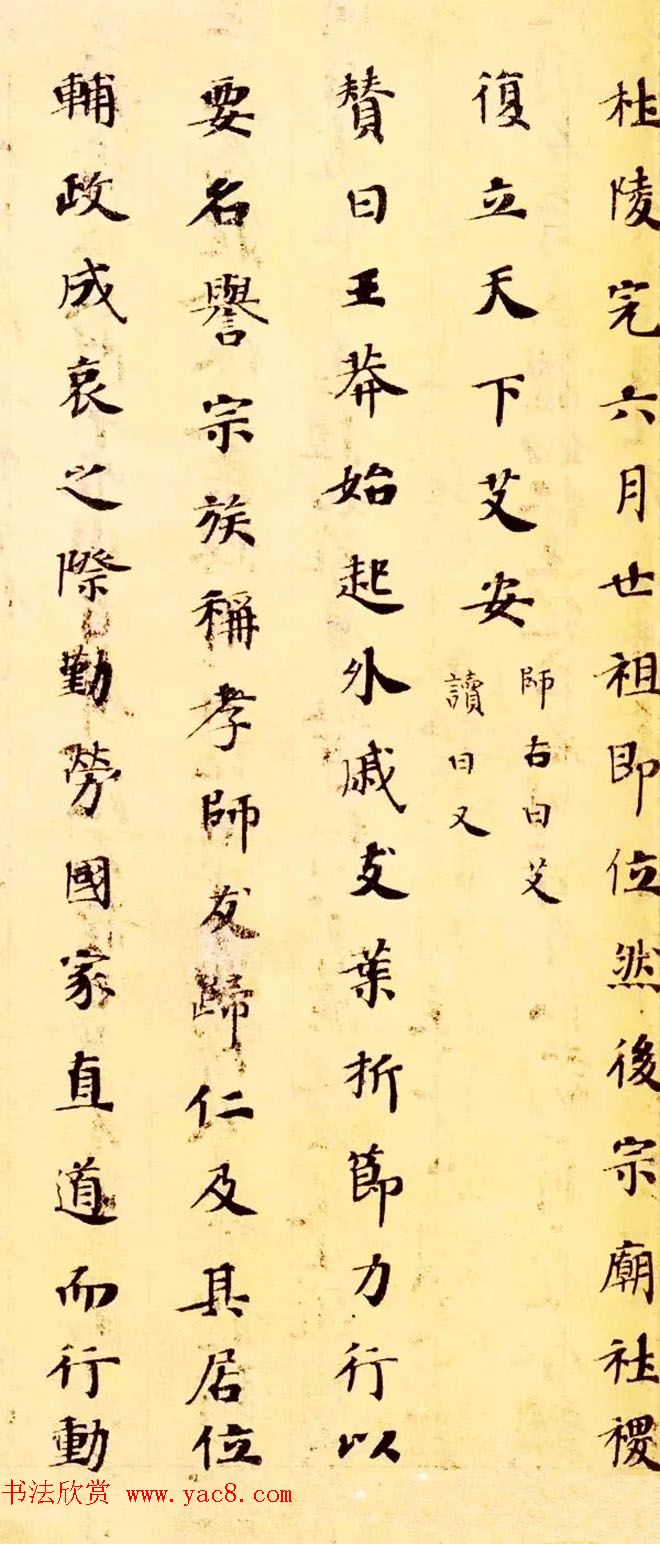 杜陵完六月世祖即位然後宗廟社稷
復立天下艾安
師古曰艾
讀曰乂
贊曰王莽始起外戚支葉折節力行以
要名譽宗族稱孝師友歸仁及其居位
輔政成哀之際勤勞國家直道而行動
书法欣赏 www.yac8.com